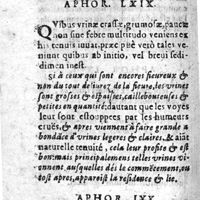 APHOR. LXIX.
QVibus vrinæ crassæ, grumosæ, paucæ
non sine febre multitudo veniens ex
his tenuis iuuat: præcipuè verò tales ve-
niunt quibus ab initio, vel breui sedi-
dimen inest.
Si à ceux qui sont encores fieureux &
non du tout deliurez de la fieure, les vrines
sont grosses & espaisses, caillebouteuses &
petites en quantité: d'autant que les voyes
leur sont estouppees par les humeurs
crues, & apres viennent à faire grande a-
bondãce d'vrines legeres & claires, & aiãt
naturelle tenuité, cela leur profite & est
bon: mais principalemens telles vrines vi-
ennent, ausquelles dés le commẽcement, ou
tost apres, apparoist la residence & lie.
APHOR. LXX